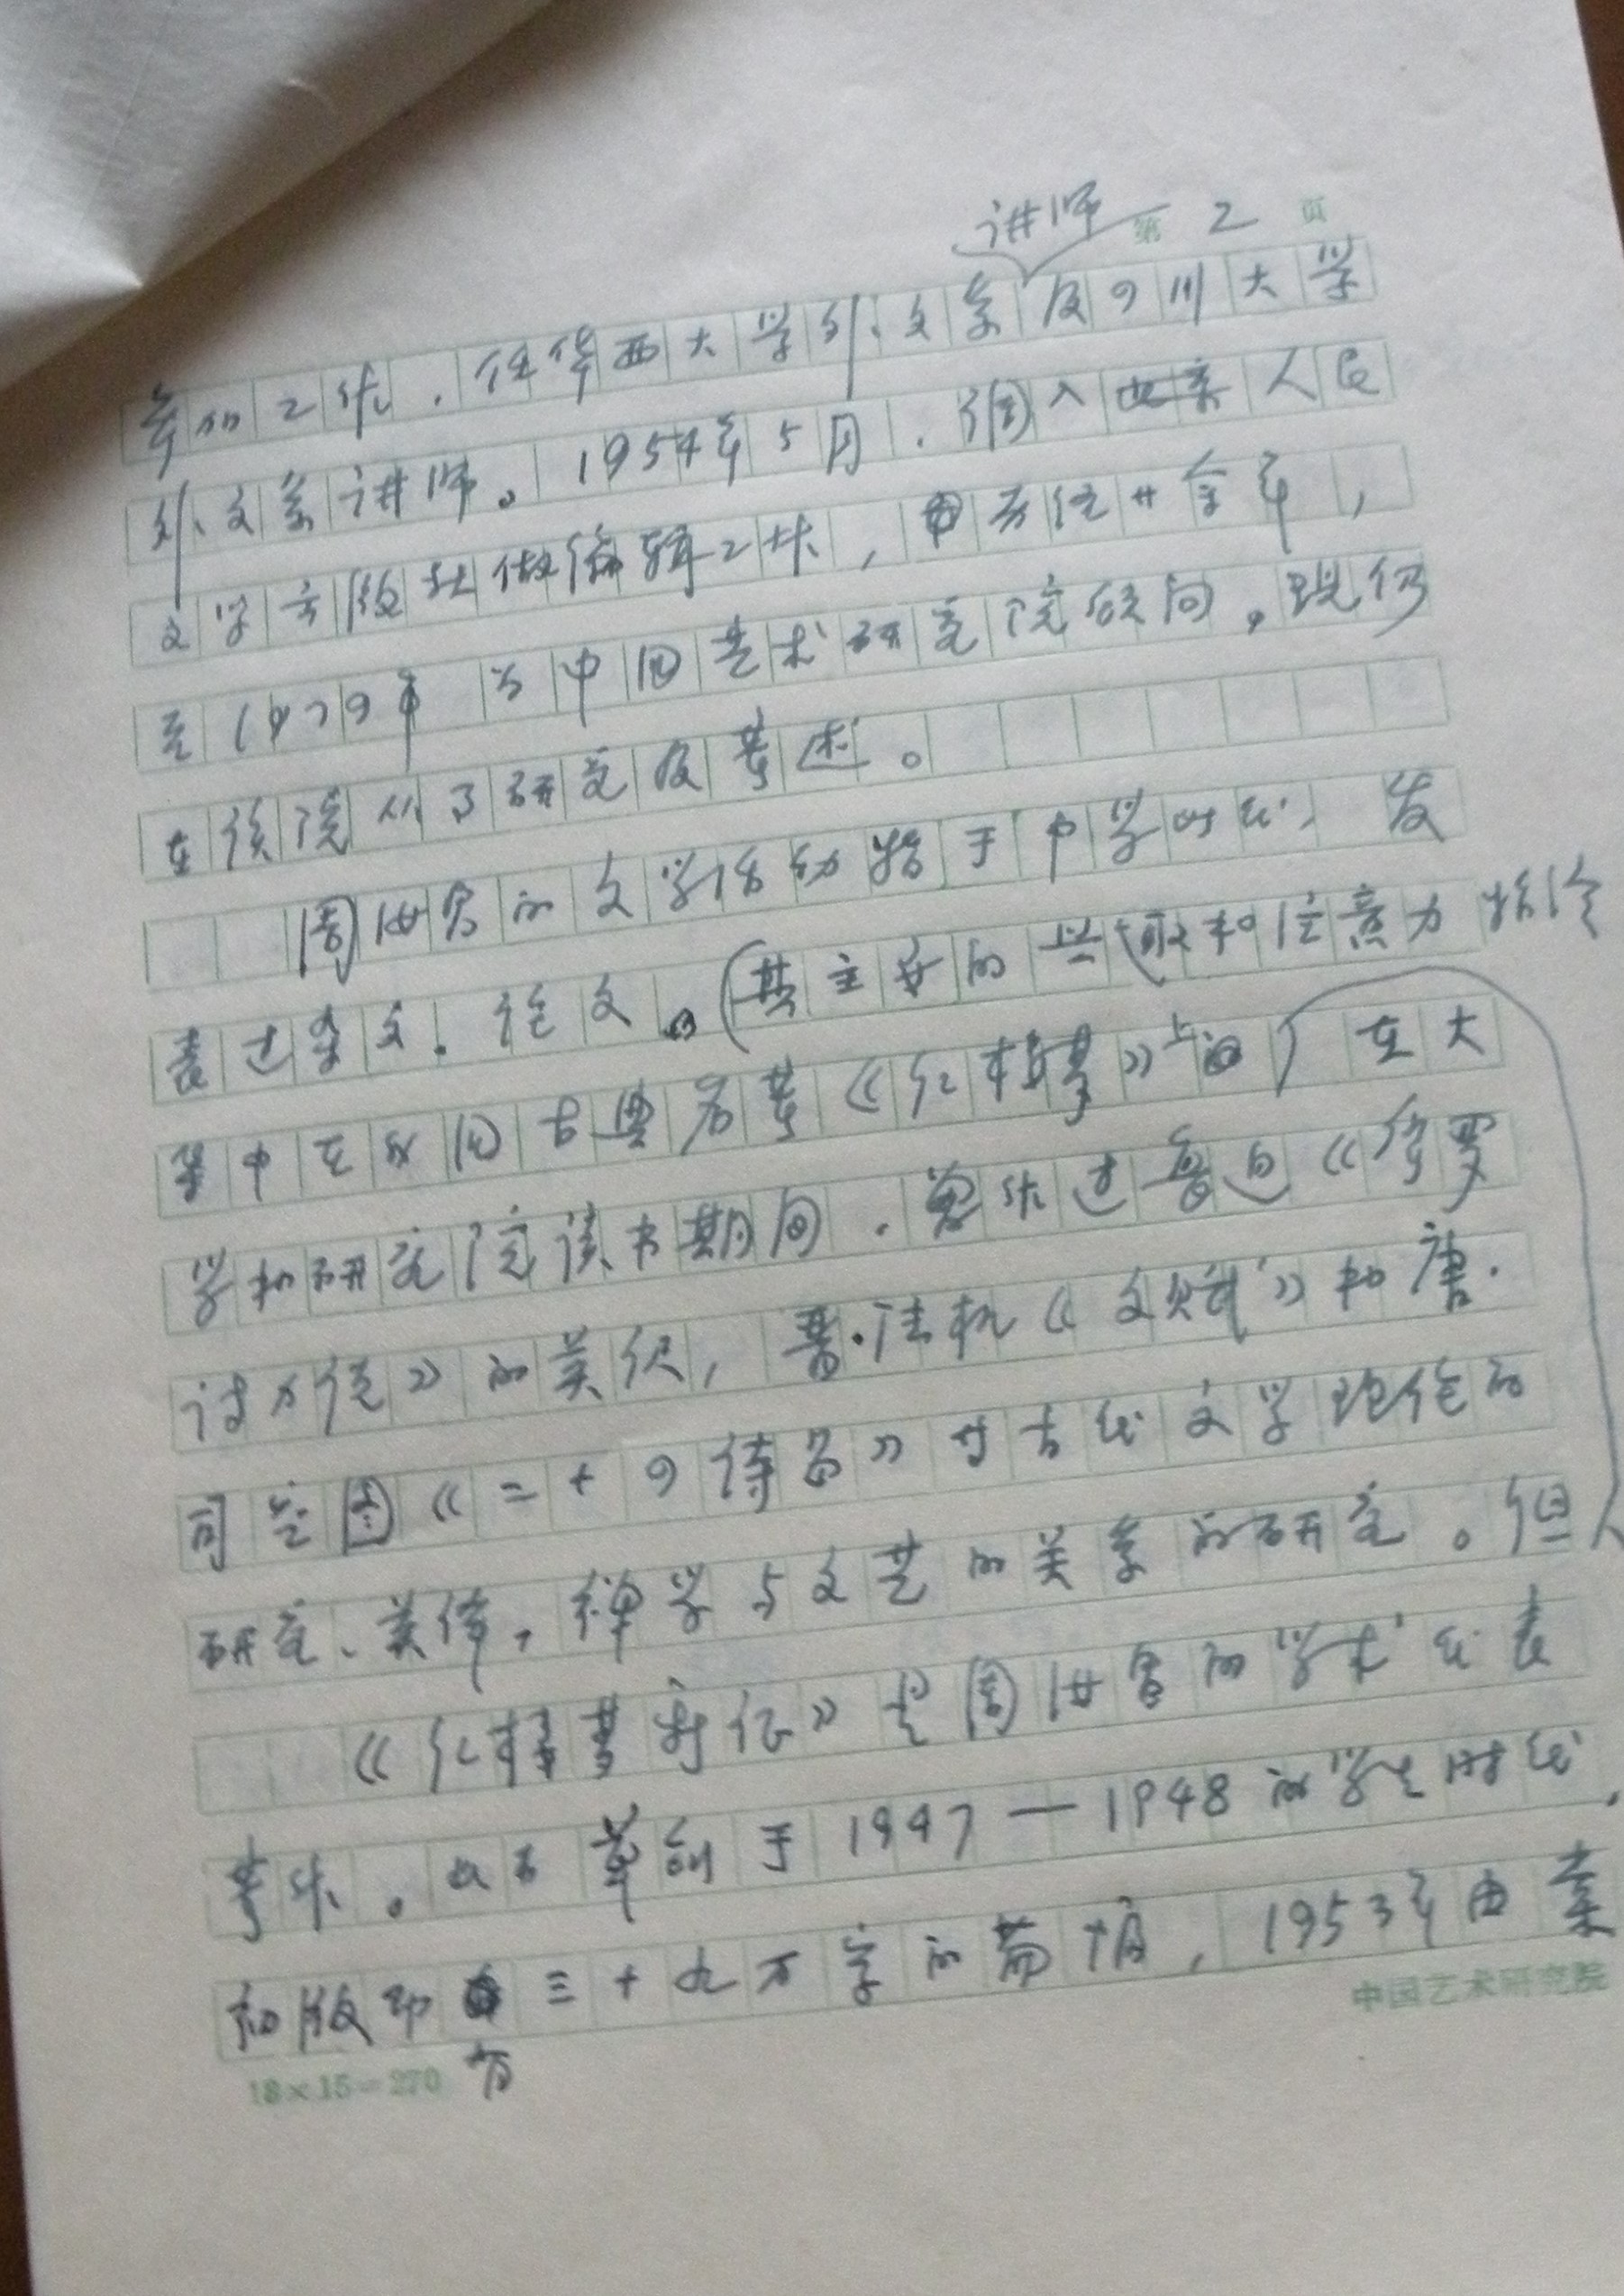 讲师 第 2 页
参加工作，任华西大学外文系及四川大学
外文系讲师。1954年5月，调入北京人民
文学出版社做编辑工作，历经廿余年，
至1979年 为中国艺术研究院顾问，现仍
在该院从事研究及著述。
周汝昌的文学活动始于中学时代，发
表过杂文、论文。（其主要的兴趣和注意力始终
集中在我国古典名著《红楼梦》上的）在大
学和研究院读书期间，曾作过鲁迅《阿罗
的英织，晋·陆机《文赋》和唐·
司空图《二十四诗品》等古代文学理论的
研究、英译，禅学与文艺的关系的研究。但
《红楼梦新证》是周汝昌的学术代表
著作。此书草创于1947—1948的学生时代，
初版即有三十九万字的篇幅，1953年由棠
中国艺术研究院
18×15=270